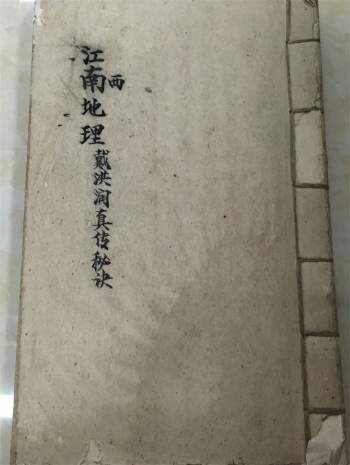 江南地理
西
戴洪润真传秘诀